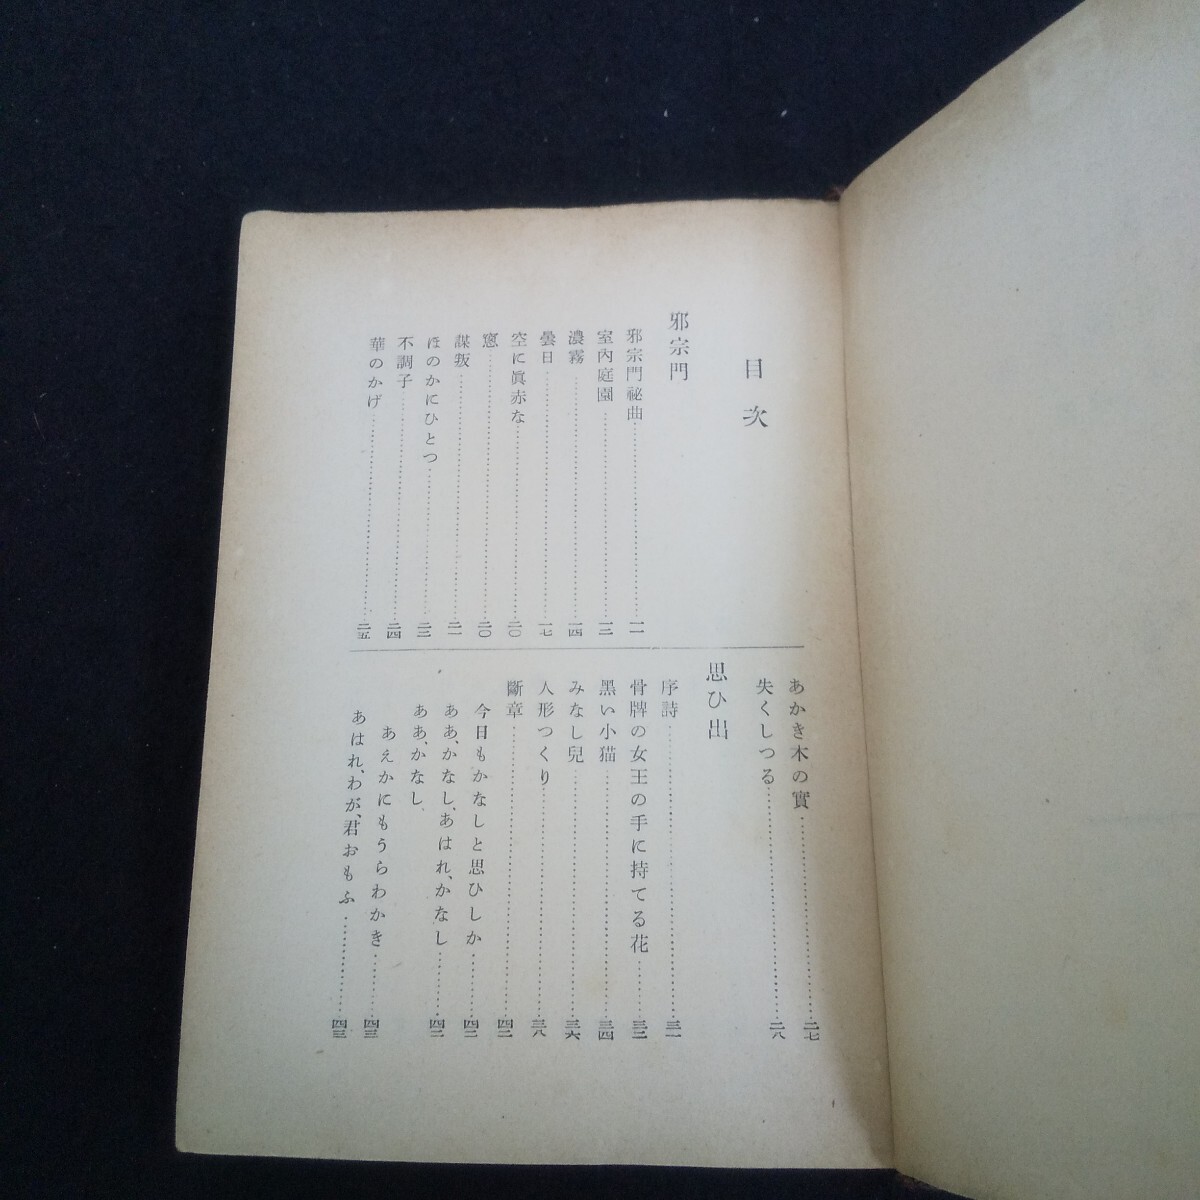 目次
邪宗門
邪宗門祕曲……一一
室內庭園……一二
濃霧……一四
曇日……一七
空に眞赤な……二〇
窻……二〇
謀叛……二一
ほのかにひとつ……二三
不調子……二四
華のかげ……二五
あかき木の實……二七
失くしつる……二八
思ひ出
序詩……三一
骨牌の女王の手に持てる花……三二
黑い小猫……三四
みなし兒……三六
人形つくり……三八
斷章……四二
今日もかなしと思ひしか……四二
ああ、かなし、あはれ、かなし……四二
ああ、かなし
あえかにもうらわかき……四三
あはれ、わが、君おもふ……四三